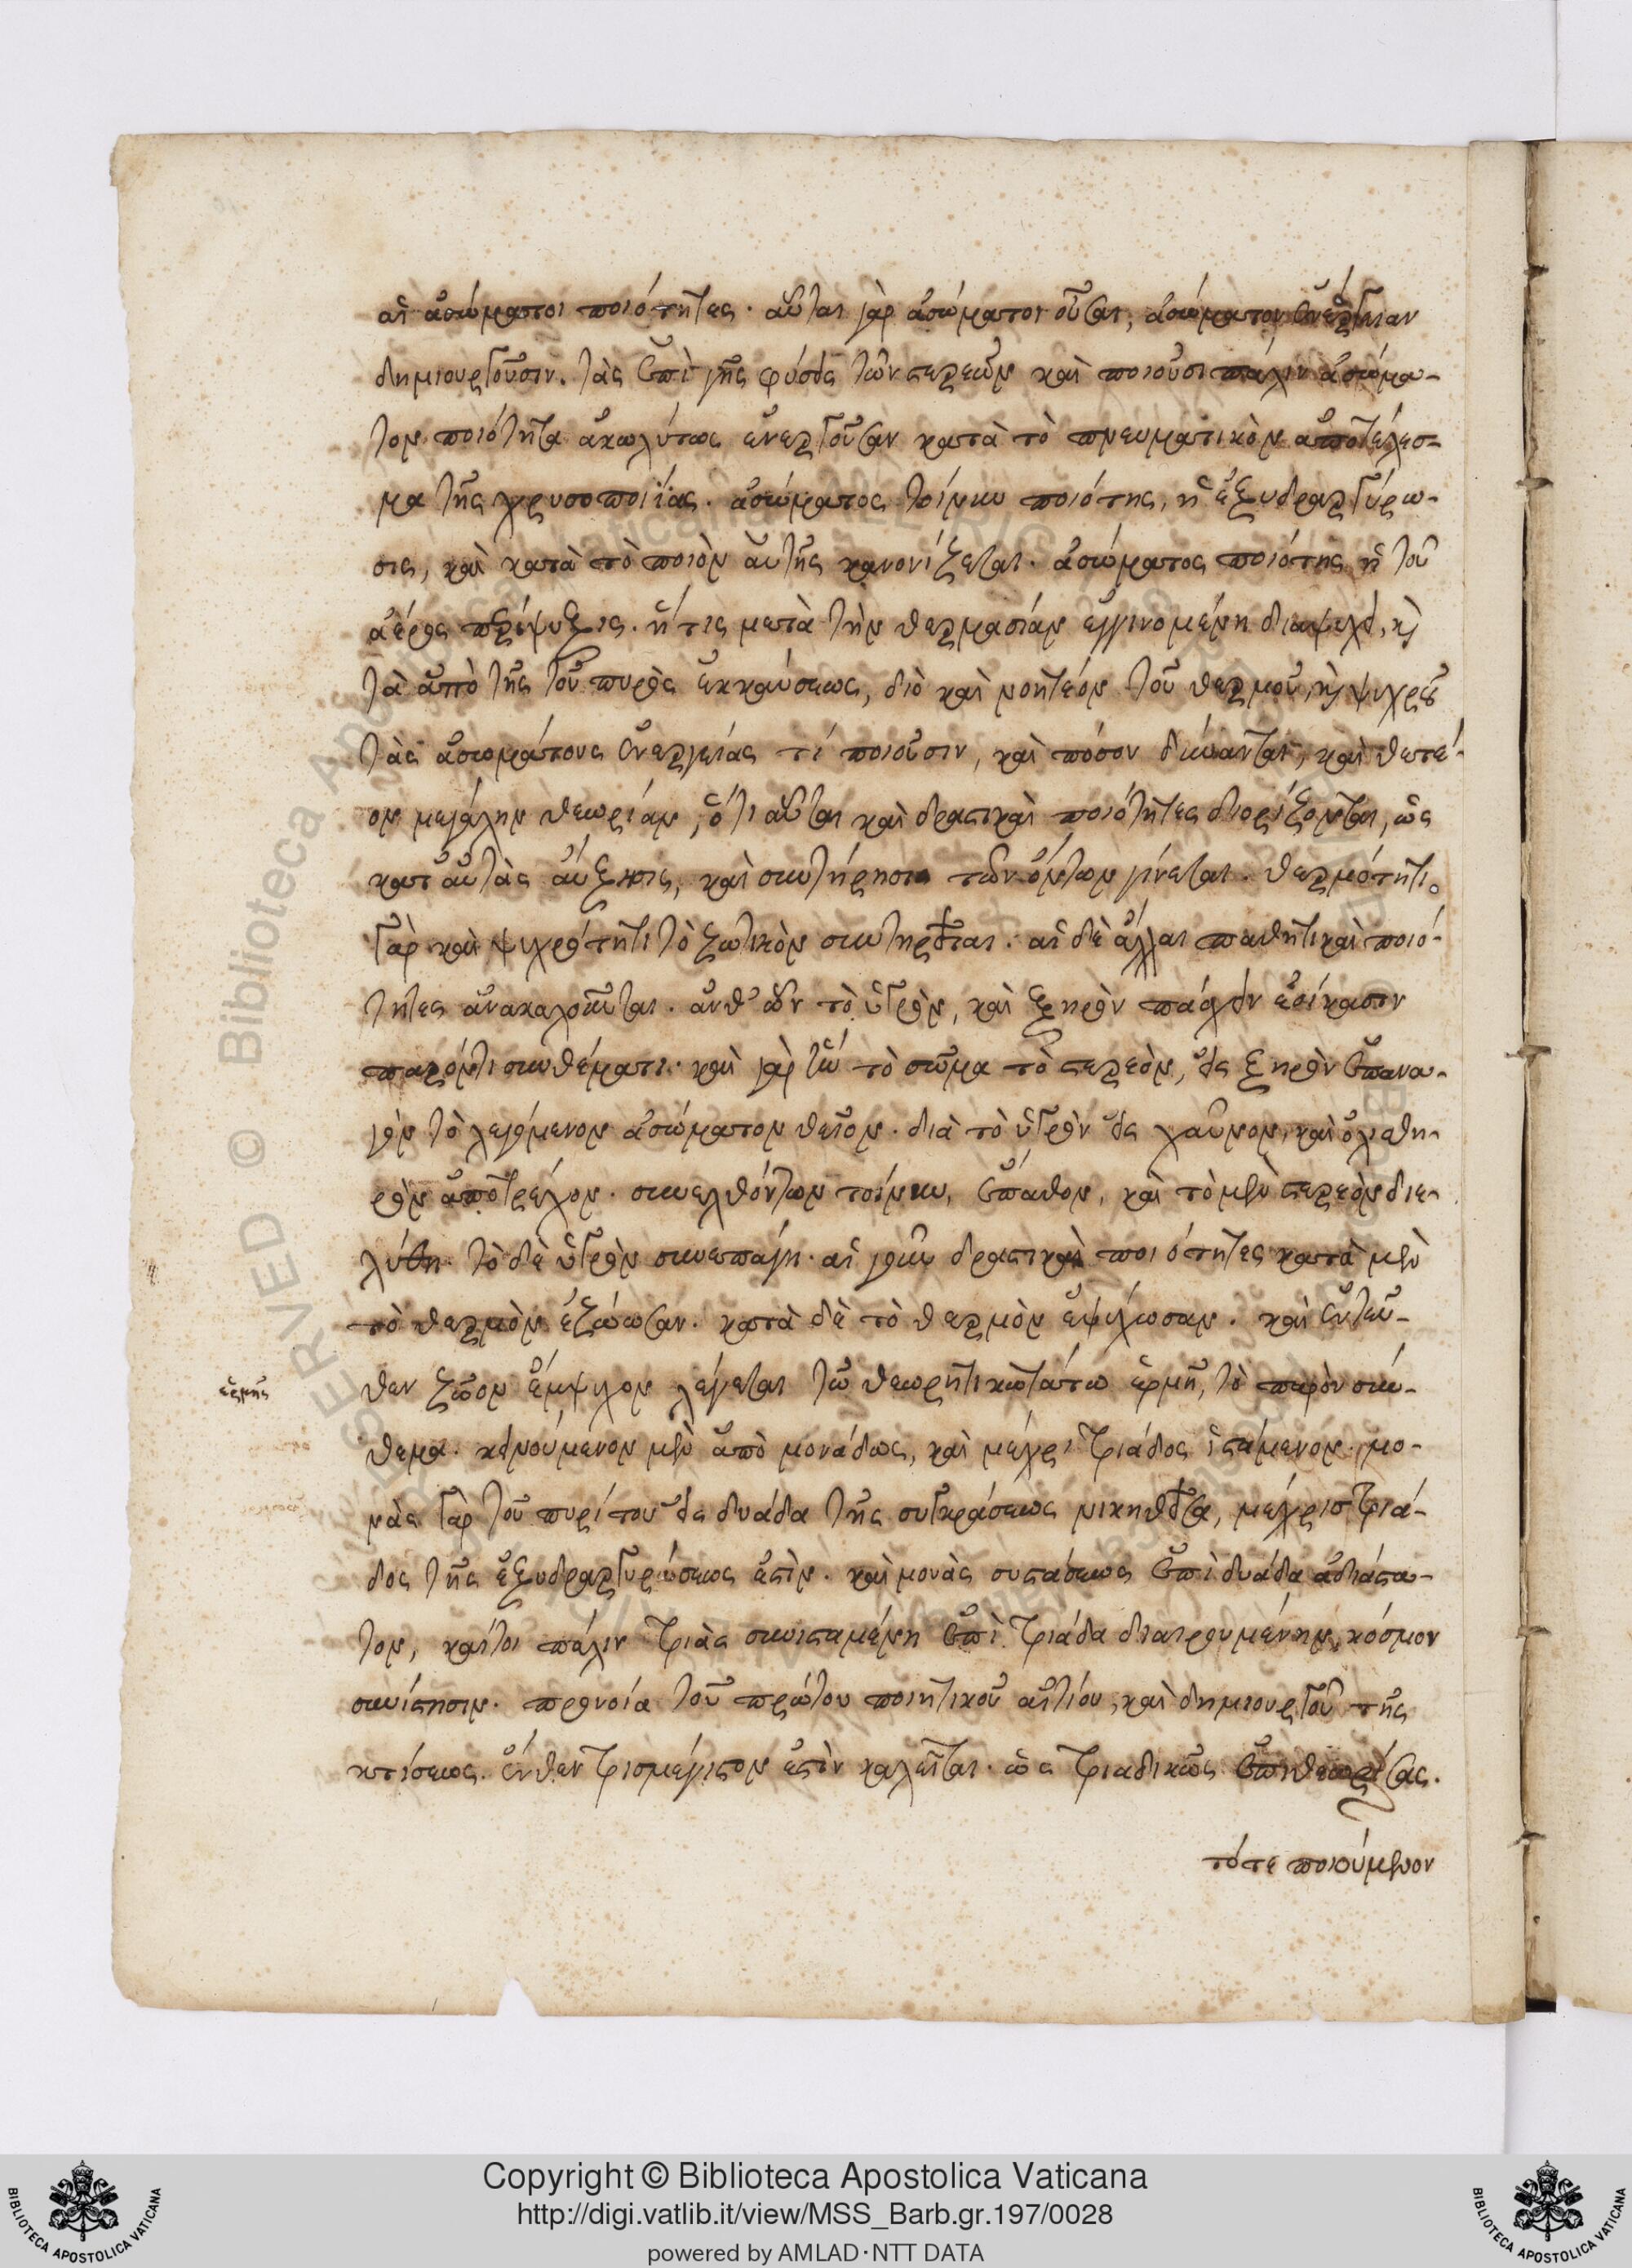 αἱ ἀσώματοι ποιότητες. αὗται γὰρ ἀσώματοι οὖσαι, ἀσώματον ἐνέργειαν
δημιουργοῦσιν. τὰς ἐπὶ γῆς φύσεις τῶν στερεῶν καὶ ποιοῦσι πάλιν ἀσώμα-
τον ποιότητα ἀκωλύτως ἐνεργοῦσαν κατὰ τὸ πνευματικὸν ἀποτέλεσ-
μα τῆς χρυσοποιΐας. ἀσώματος τοίνυν ποιότης, ἡ ἐξυδραργύρω-
σις, καὶ κατὰ τὸ ποιὸν αὐτῆς κανονίζεται. ἀσώματος ποιότης ἡ τοῦ
ἀέρος περίψυξις. ἥτις μετὰ τὴν θερμασίαν ἐγγινομένη διαψύχει, καὶ
τὰ ἀπὸ τῆς τοῦ πυρὸς ἐκκαύσεως, διὸ καὶ νοητέον τοῦ θερμοῦ, καὶ ψυχροῦ
τὰς ἀσωμάτους ἐνεργείας τί ποιοῦσιν, καὶ πόσον δύνανται, καὶ θετέ-
ον μεγάλην θεωρίαν, ὅτι αὗται καὶ δραστικαὶ ποιότητες διορίζονται, ὡς
κατ' αὐτὰς αὔξησις, καὶ συντήρησις τῶν ὄντων γίνεται. θερμότητι
γὰρ καὶ ψυχρότητι τὸ ζωτικὸν συντηρεῖται. αἱ δὲ ἄλλαι παθητικαὶ ποιό-
τητες ἀνακαλοῦνται. ἀνθ' ὧν τὸ ὑγρὸν, καὶ ξηρὸν πάσχειν ἐοίκασιν
παρόντι συνθέματι. καὶ γὰρ ἦν τὸ σῶμα τὸ στερεὸν, εἰς ξηρὸν ἐπανα-
γον τὸ λεγόμενον ἀσώματον θεῖον. διὰ τὸ ὑγρὸν εἰς χαῦνον, καὶ ὀλισθη-
ρὸν ἀποτρέχον. συνελθόντων τοίνυν, ἔπαθον, καὶ τὸ μὲν στερεὸν διε-
λύθη τὸ δὲ ὑγρὸν συνεπάγη. αἱ γοῦν δραστικαὶ ποιότητες κατὰ μὲν
τὸ θερμὸν ἐζώωσαν. κατὰ δὲ τὸ θερμὸν ἐψύχωσαν. καὶ ἐντεῦ-
θεν ζῶον ἔμψυχον λέγεται τῷ θεωρητικωτάτῳ ἑρμῇ, τὸ παρὸν σύν-
ἑρμῆς
θεμα. κινούμενον μὲν ἀπὸ μονάδος, καὶ μέχρι τριάδος ἱστάμενον. μο-
νὰς γὰρ τοῦ πυρίτου εἰς δυάδα τῆς συγκράσεως νικηθεῖσα, μέχρις τριά-
δος τῆς ἐξυδραργυρώσεως ἐστὶν. καὶ μονὰς συστάσεως ἐπὶ δυάδα ἀδιάστα-
τον, καίτοι πάλιν τριὰς συνισταμένη ἐπὶ τριάδα διαιρουμένην, κόσμον
συνίστησιν. προνοία τοῦ πρώτου ποιητικοῦ αἰτίου, καὶ δημιουργοῦ τῆς
κτίσεως. ἔνθεν τρισμέγιστον ἐστὶν καλεῖται. ὡς τριαδικῶς ἐπιθεωρίσας.
τό τε ποιούμενον
Copyright © Biblioteca Apostolica Vaticana
http://digi.vatlib.it/view/MSS_Barb.gr.197/0028
powered by AMLAD·NTT DATA